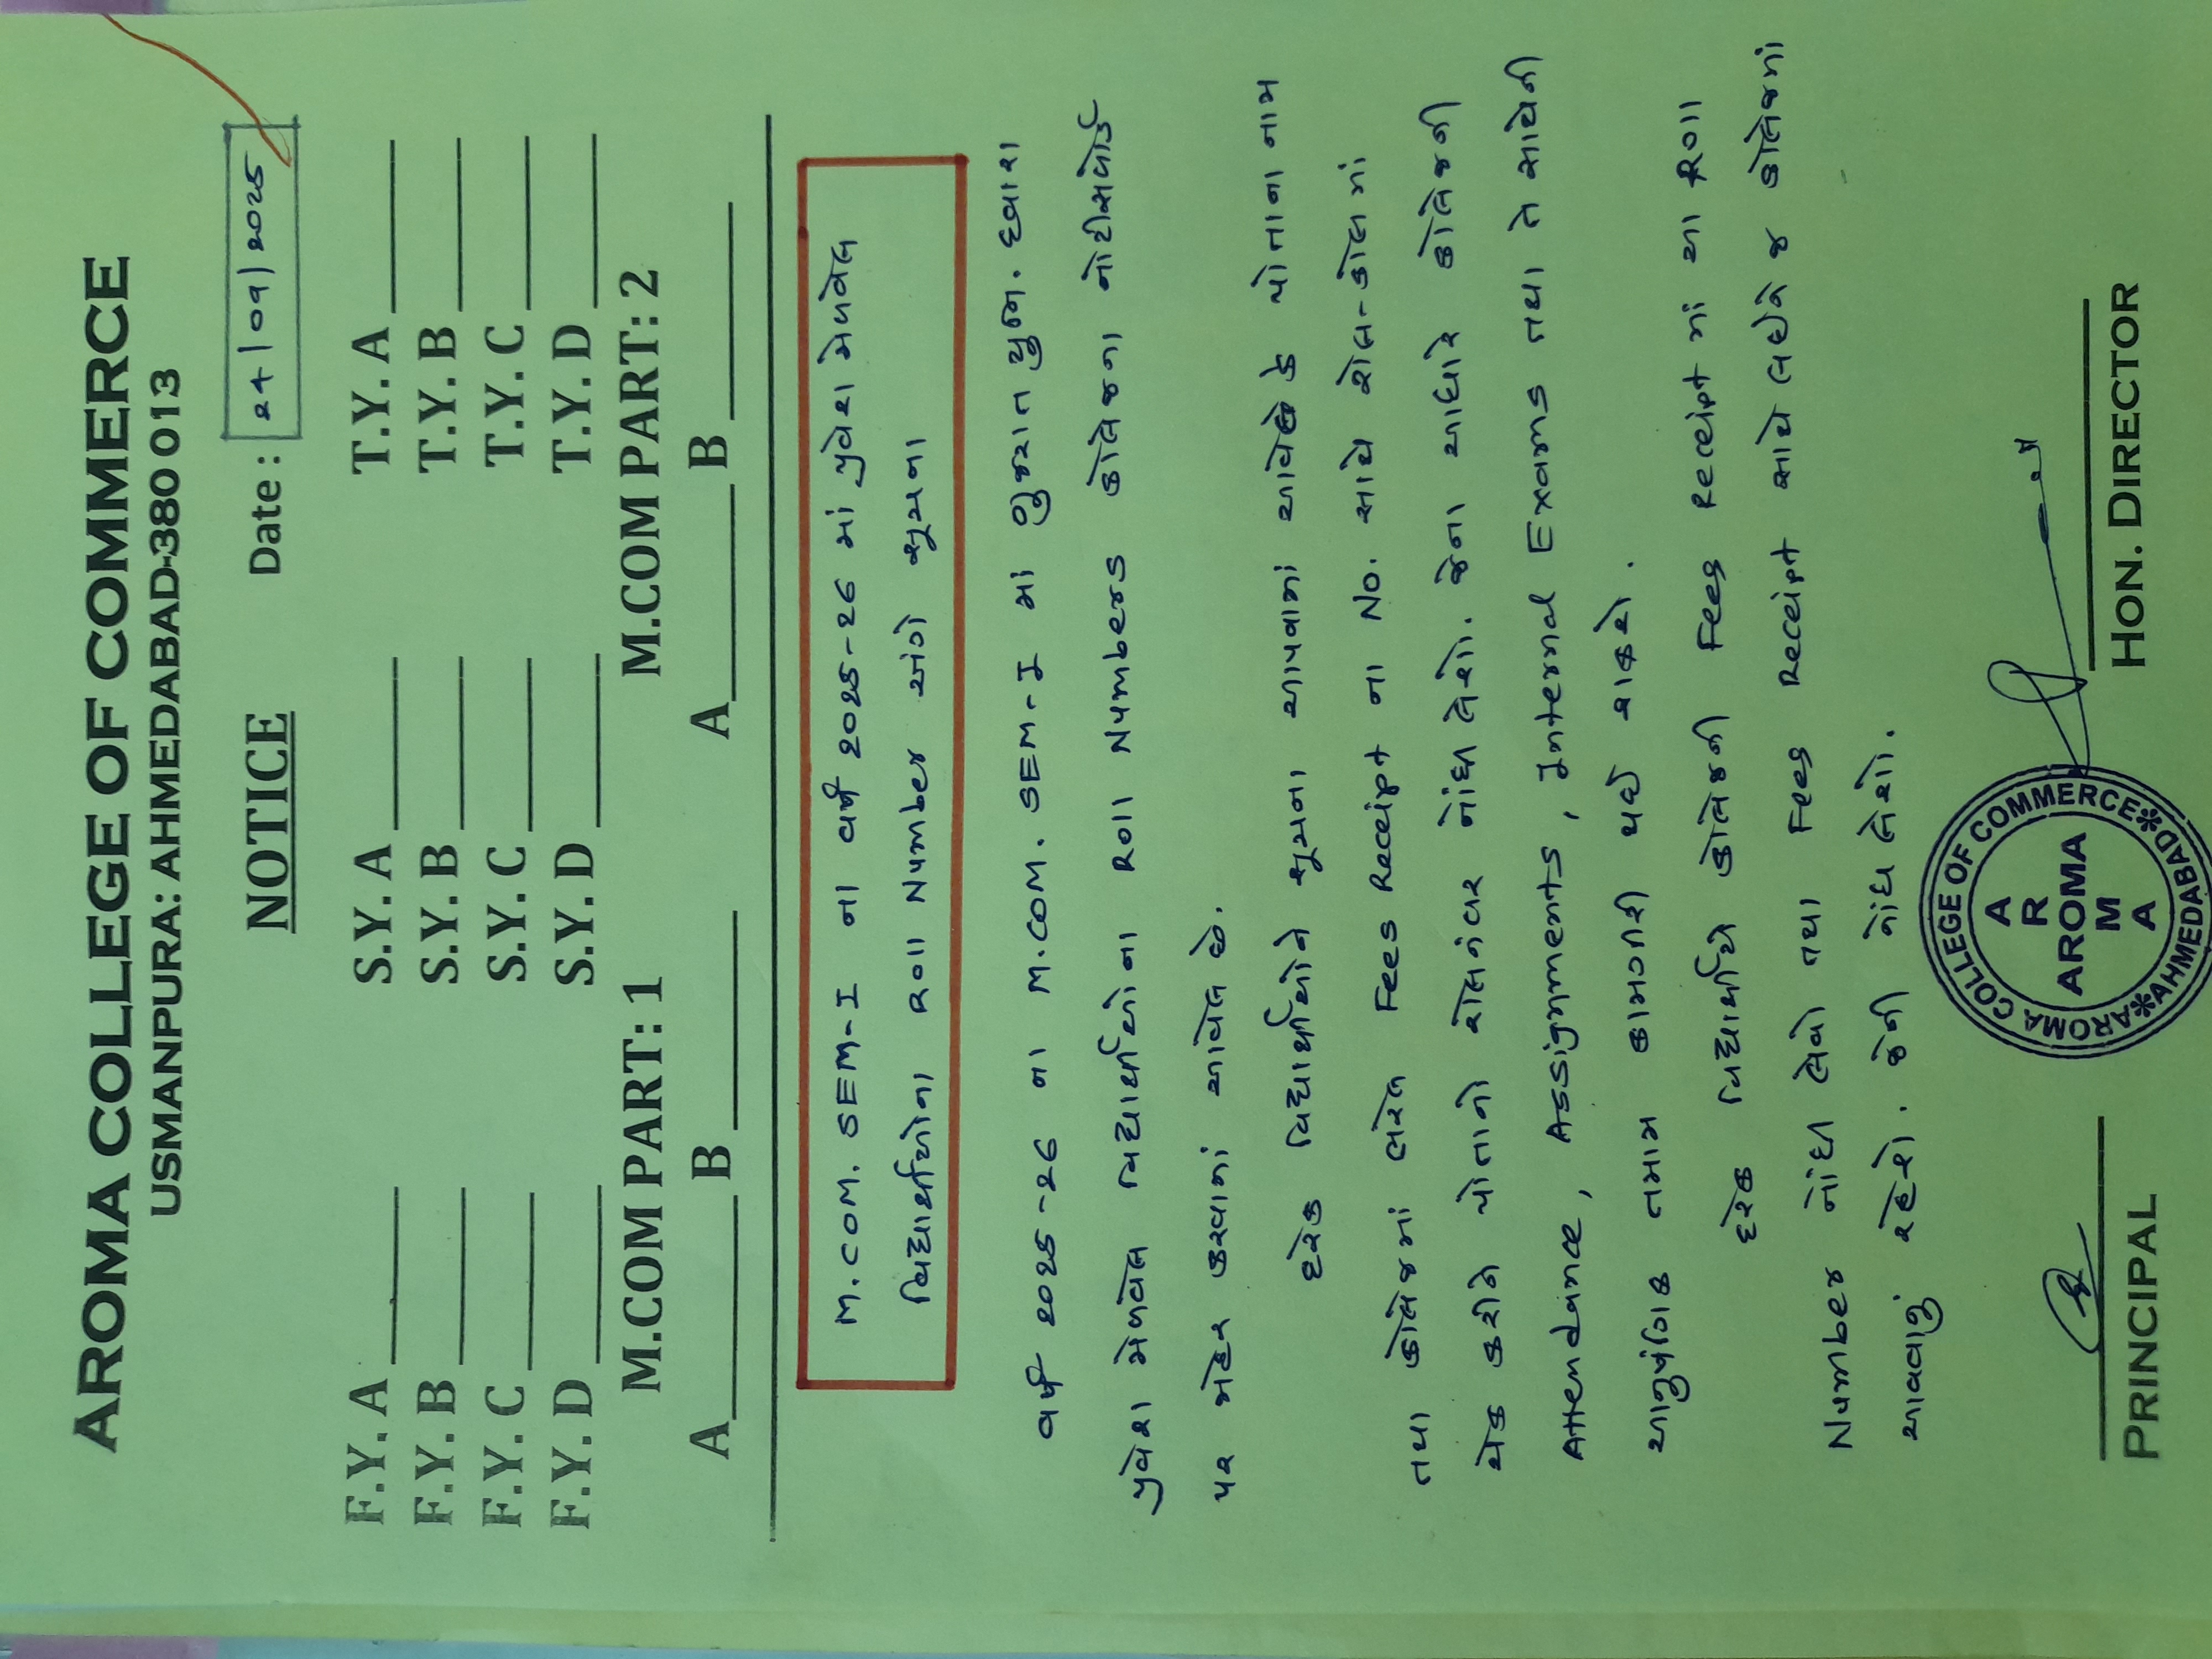 AROMA COLLEGE OF COMMERCE
USMANPURA: AHMEDABAD-380 013
NOTICE Date: 24/09/2025
F.Y. A ____ S.Y. A ____ T.Y. A ____
F.Y. B ____ S.Y. B ____ T.Y. B ____
F.Y. C ____ S.Y. C ____ T.Y. C ____
F.Y. D ____ S.Y. D ____ T.Y. D ____
M.COM PART: 1 M.COM PART: 2
A ____ B ____ A ____ B ____
M.COM. SEM-I ના વર્ષ 2025-26 માં પ્રવેશ મેળવેલ
વિદ્યાર્થીઓના Roll Number અંગે સૂચના
વર્ષ 2025-26 ના M.COM. SEM-I માં ગુજરાત યુનિ. દ્વારા
પ્રવેશ મેળવેલ વિદ્યાર્થીઓના Roll Numbers કોલેજના નોટીસબોર્ડ
પર જાહેર કરવામાં આવેલ છે.
દરેક વિદ્યાર્થીઓને સૂચના આપવામાં આવે છે કે પોતાના નામ
તથા કોલેજમાં ભરેલ Fees Receipt ના No. સાથે રોલ-કોલમાં
ચેક કરીને પોતાનો રોલનંબર નોંધી લેશો. જેના આધારે કોલેજની
Attendance, Assignments, Internal Exams તથા તે સાથેની
આનુષંગિક તમામ કામગીરી થઈ શકશે.
દરેક વિદ્યાર્થીએ કોલેજની Fees Receipt માં આ Roll
Number નોંધી લેવો તથા Fees Receipt સાથે લઈને જ કોલેજમાં
આવવાનું રહેશે. જેની નોંધ લેશો.
AROMA COLLEGE OF COMMERCE
AHMEDABAD
A
R
AROMA
M
A
PRINCIPAL HON. DIRECTOR